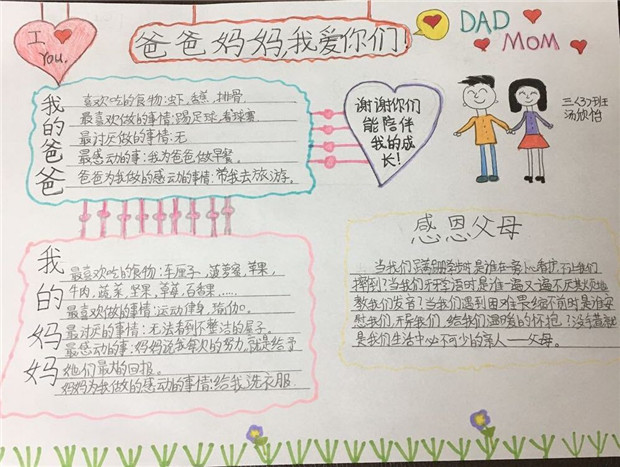 I
You.
爸爸妈妈,我爱你们!
DAD
MOM
我的爸爸
喜欢吃的食物:虾,糕,排骨.
最喜欢做的事情:踢足球,看球赛.
最讨厌做的事情:无
最感动的事:我为爸爸做早餐.
爸爸为我做的感动的事情:带我去旅游.
谢谢你们
能陪伴
我的成
长!
三(3)班
汤欣怡
我的妈妈
最喜欢吃的食物:车厘子,菠萝蜜,苹果,
牛肉,蔬菜,坚果,草莓,百香果......
最喜欢做的事情:运动健身,瑜伽。
最讨厌的事情:无法看到不整洁的屋子.
最感动的事:妈妈说我每次的努力,就是给予
她们最大的回报。
妈妈为我做的感动的事情:给我洗衣服
感恩父母
当我们蹒跚学步时是谁在旁小心看护,不让我们
摔倒?当我们牙牙学语时是谁一遍又遍不厌其烦地
教我们发音?当我们遇到困难畏缩不前时是谁安
慰我们,开导我们,给我们温暖的怀抱?没错
是我们生活中必不可少的亲人——父母。